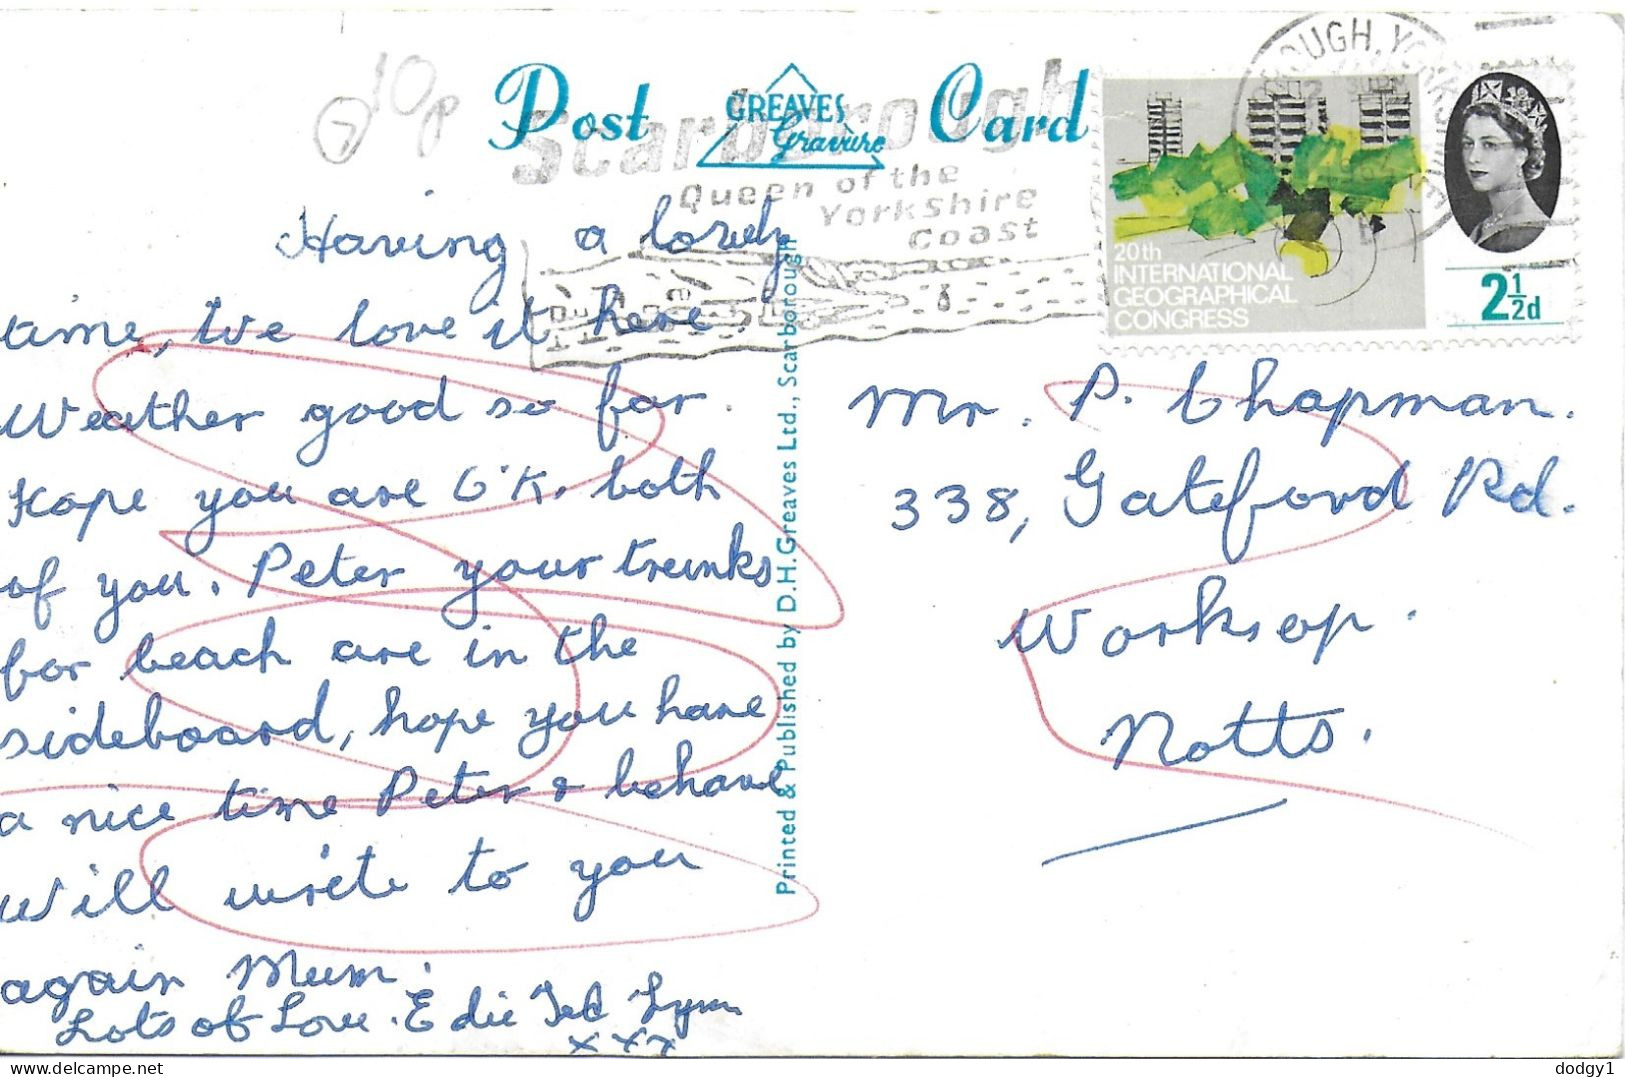 10p
7
Post Card
GREAVES
Gravure
Scarborough
Queen of the
Yorkshire
Coast
20th
INTERNATIONAL
GEOGRAPHICAL
CONGRESS
2½d
Having a lovely
time, We love it here.
Weather good so far.
Hope you are O'K. both
of you. Peter your trunks
for beach are in the
sideboard, hope you have
a nice time Peter & behave
Will write to you
again Mum.
Lots of Love. Edie Ted Lynn
xxx
Printed & Published by D.H.Greaves Ltd., Scarborough
Mr. P. Chapman.
338, Gateford Rd.
Worksop.
Notts.
delcampe.net
dodgy1